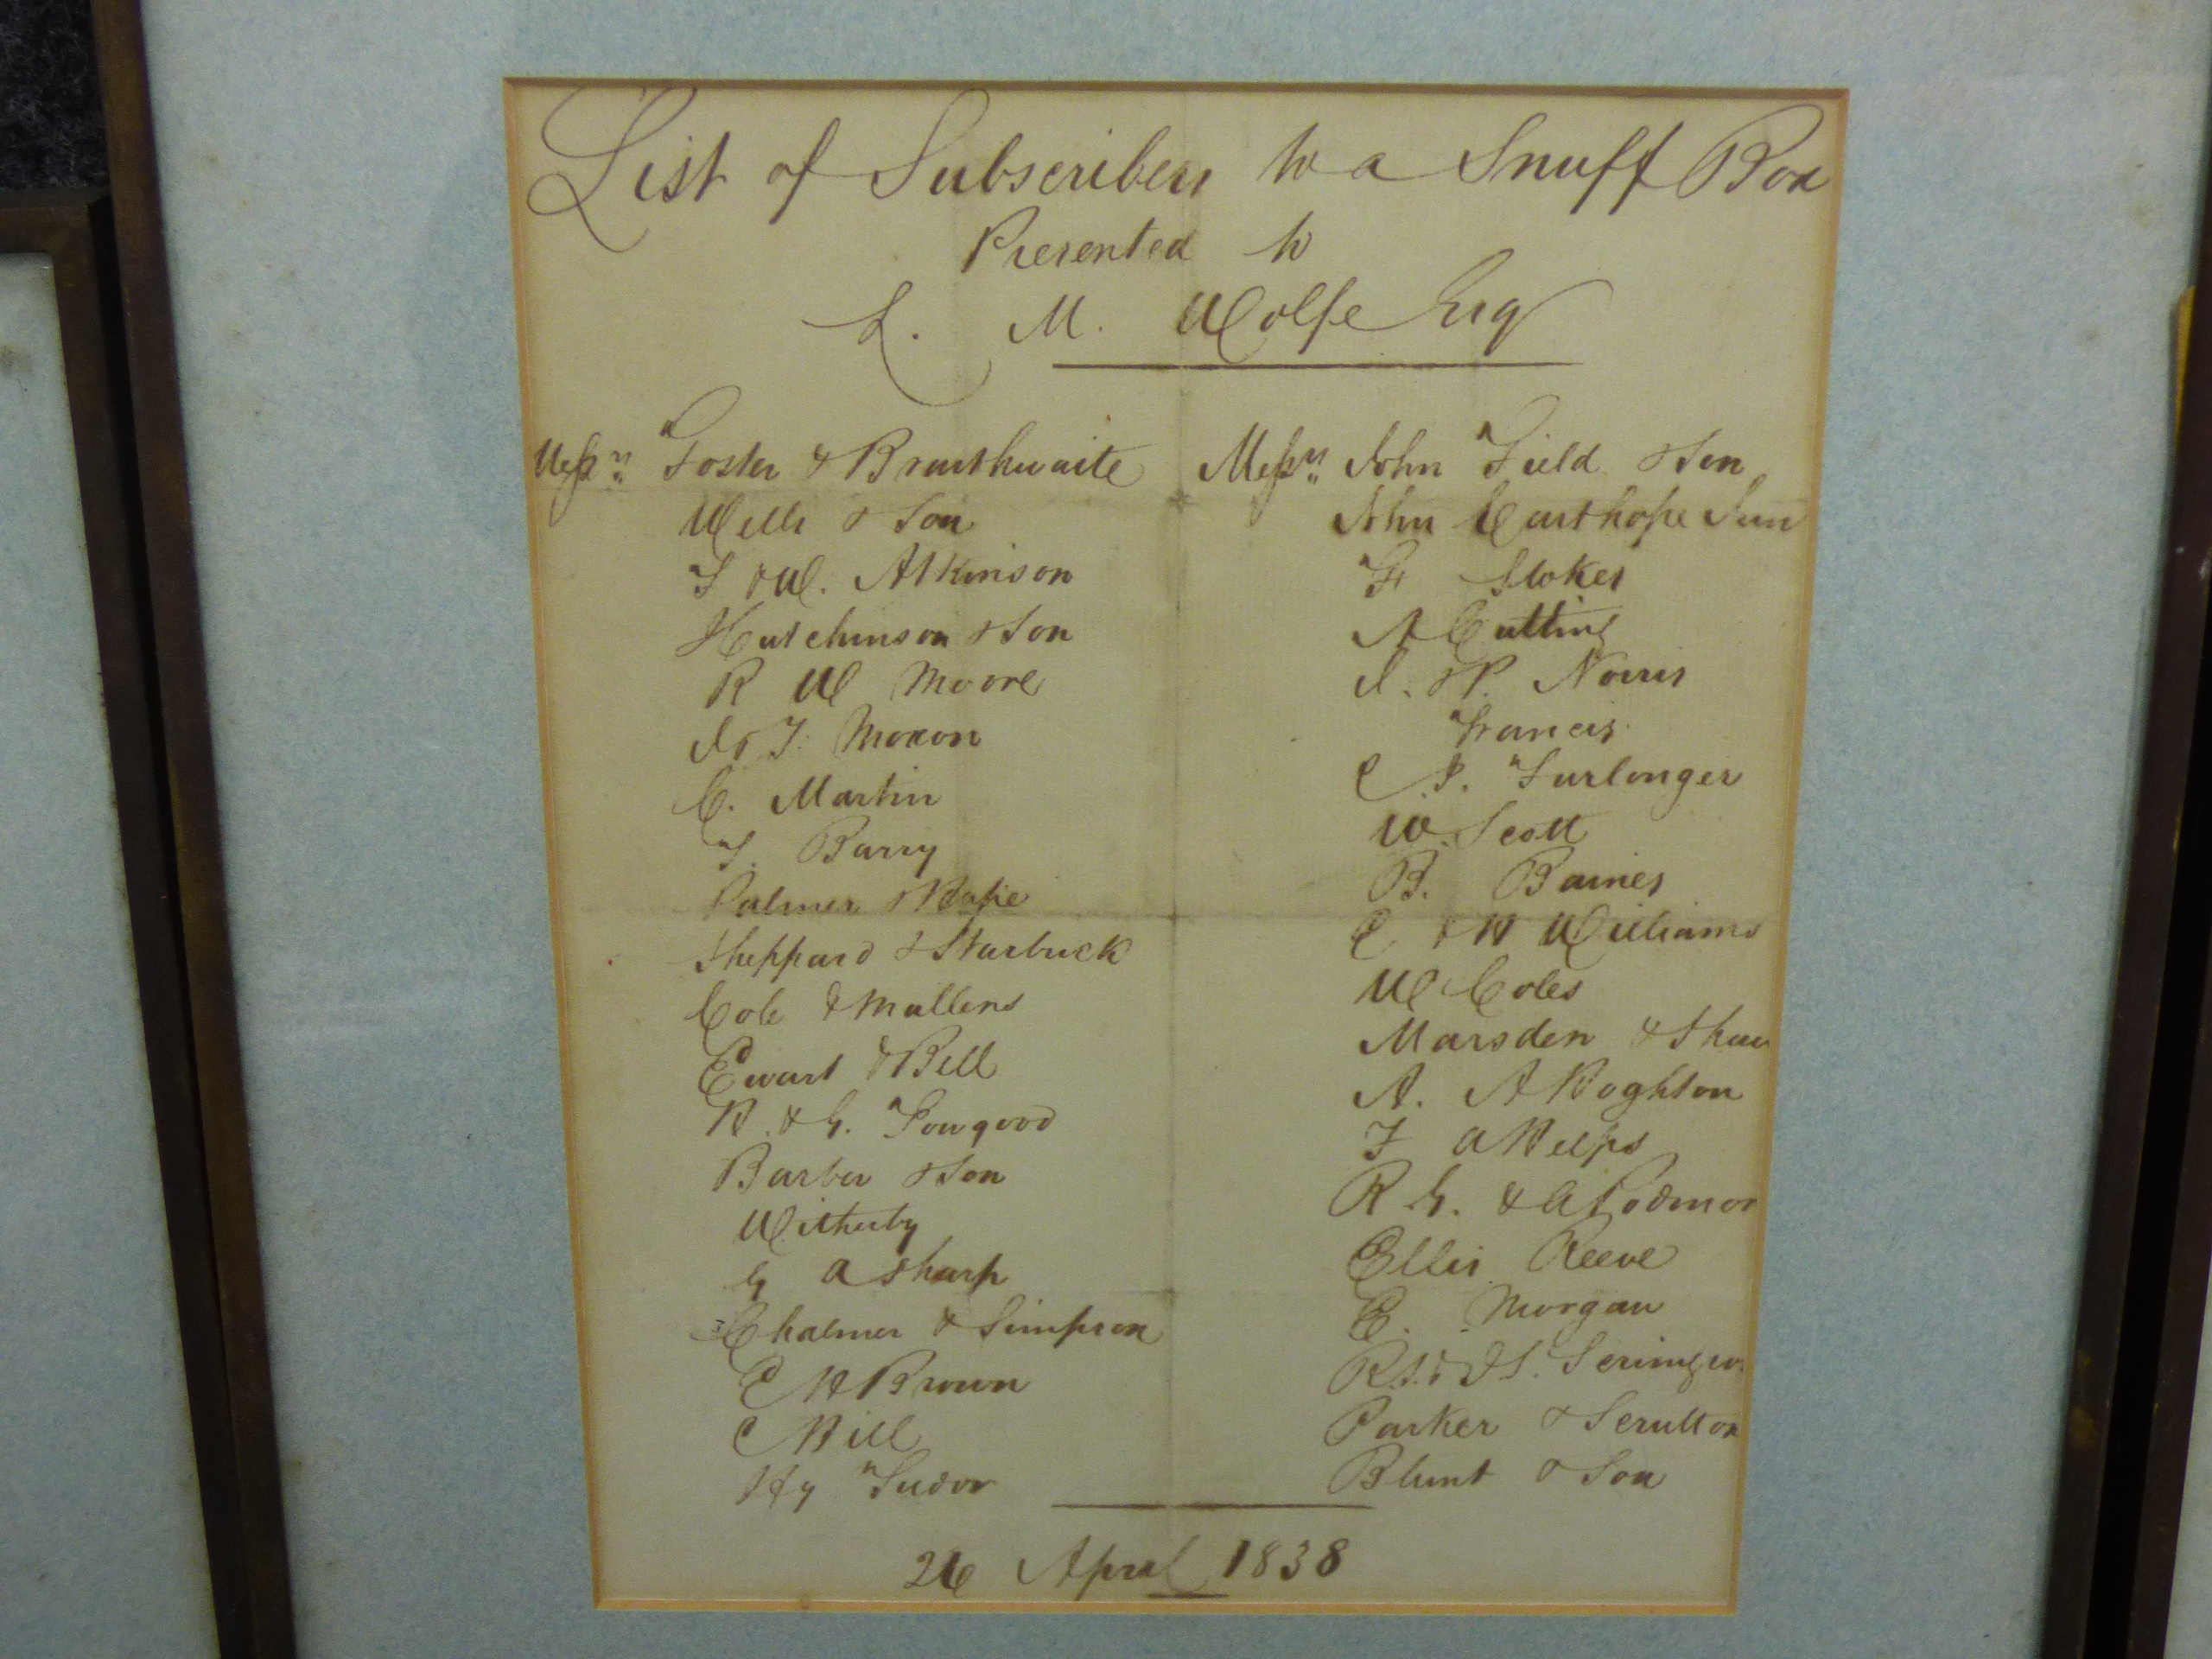 List of Subscribers to a Snuff Box
Presented to
L. M. Wolfe Esq
Messrs Foster & Braithwaite
Wells & Son
T & W. Atkinson
Hutchinson & Son
R W Moore
J & T. Moxon
C. Martin
T. Barry
Palmer &
Sheppard & Starbuck
Cole & Mullens
Ewart & Bell
H. & G. Towgood
Barber & Son
Witherby
G A Sharp
Chalmer & Simpson
E H Brown
C Hill
Hy Tudor
Messrs John Field & Son
John Easthope Junr
Stokes
A Cutting
J. & P. Norris
Francis
C. J. Furlonger
W. Scott
B. Baines
E & H Williams
W Coles
Marsden & Shaw
A. A Hoghton
T A Helps
R G. & A Podmor
Ellis Reeve
E. Morgan
Parker & Scrutton
Blunt & Son
26 April 1838